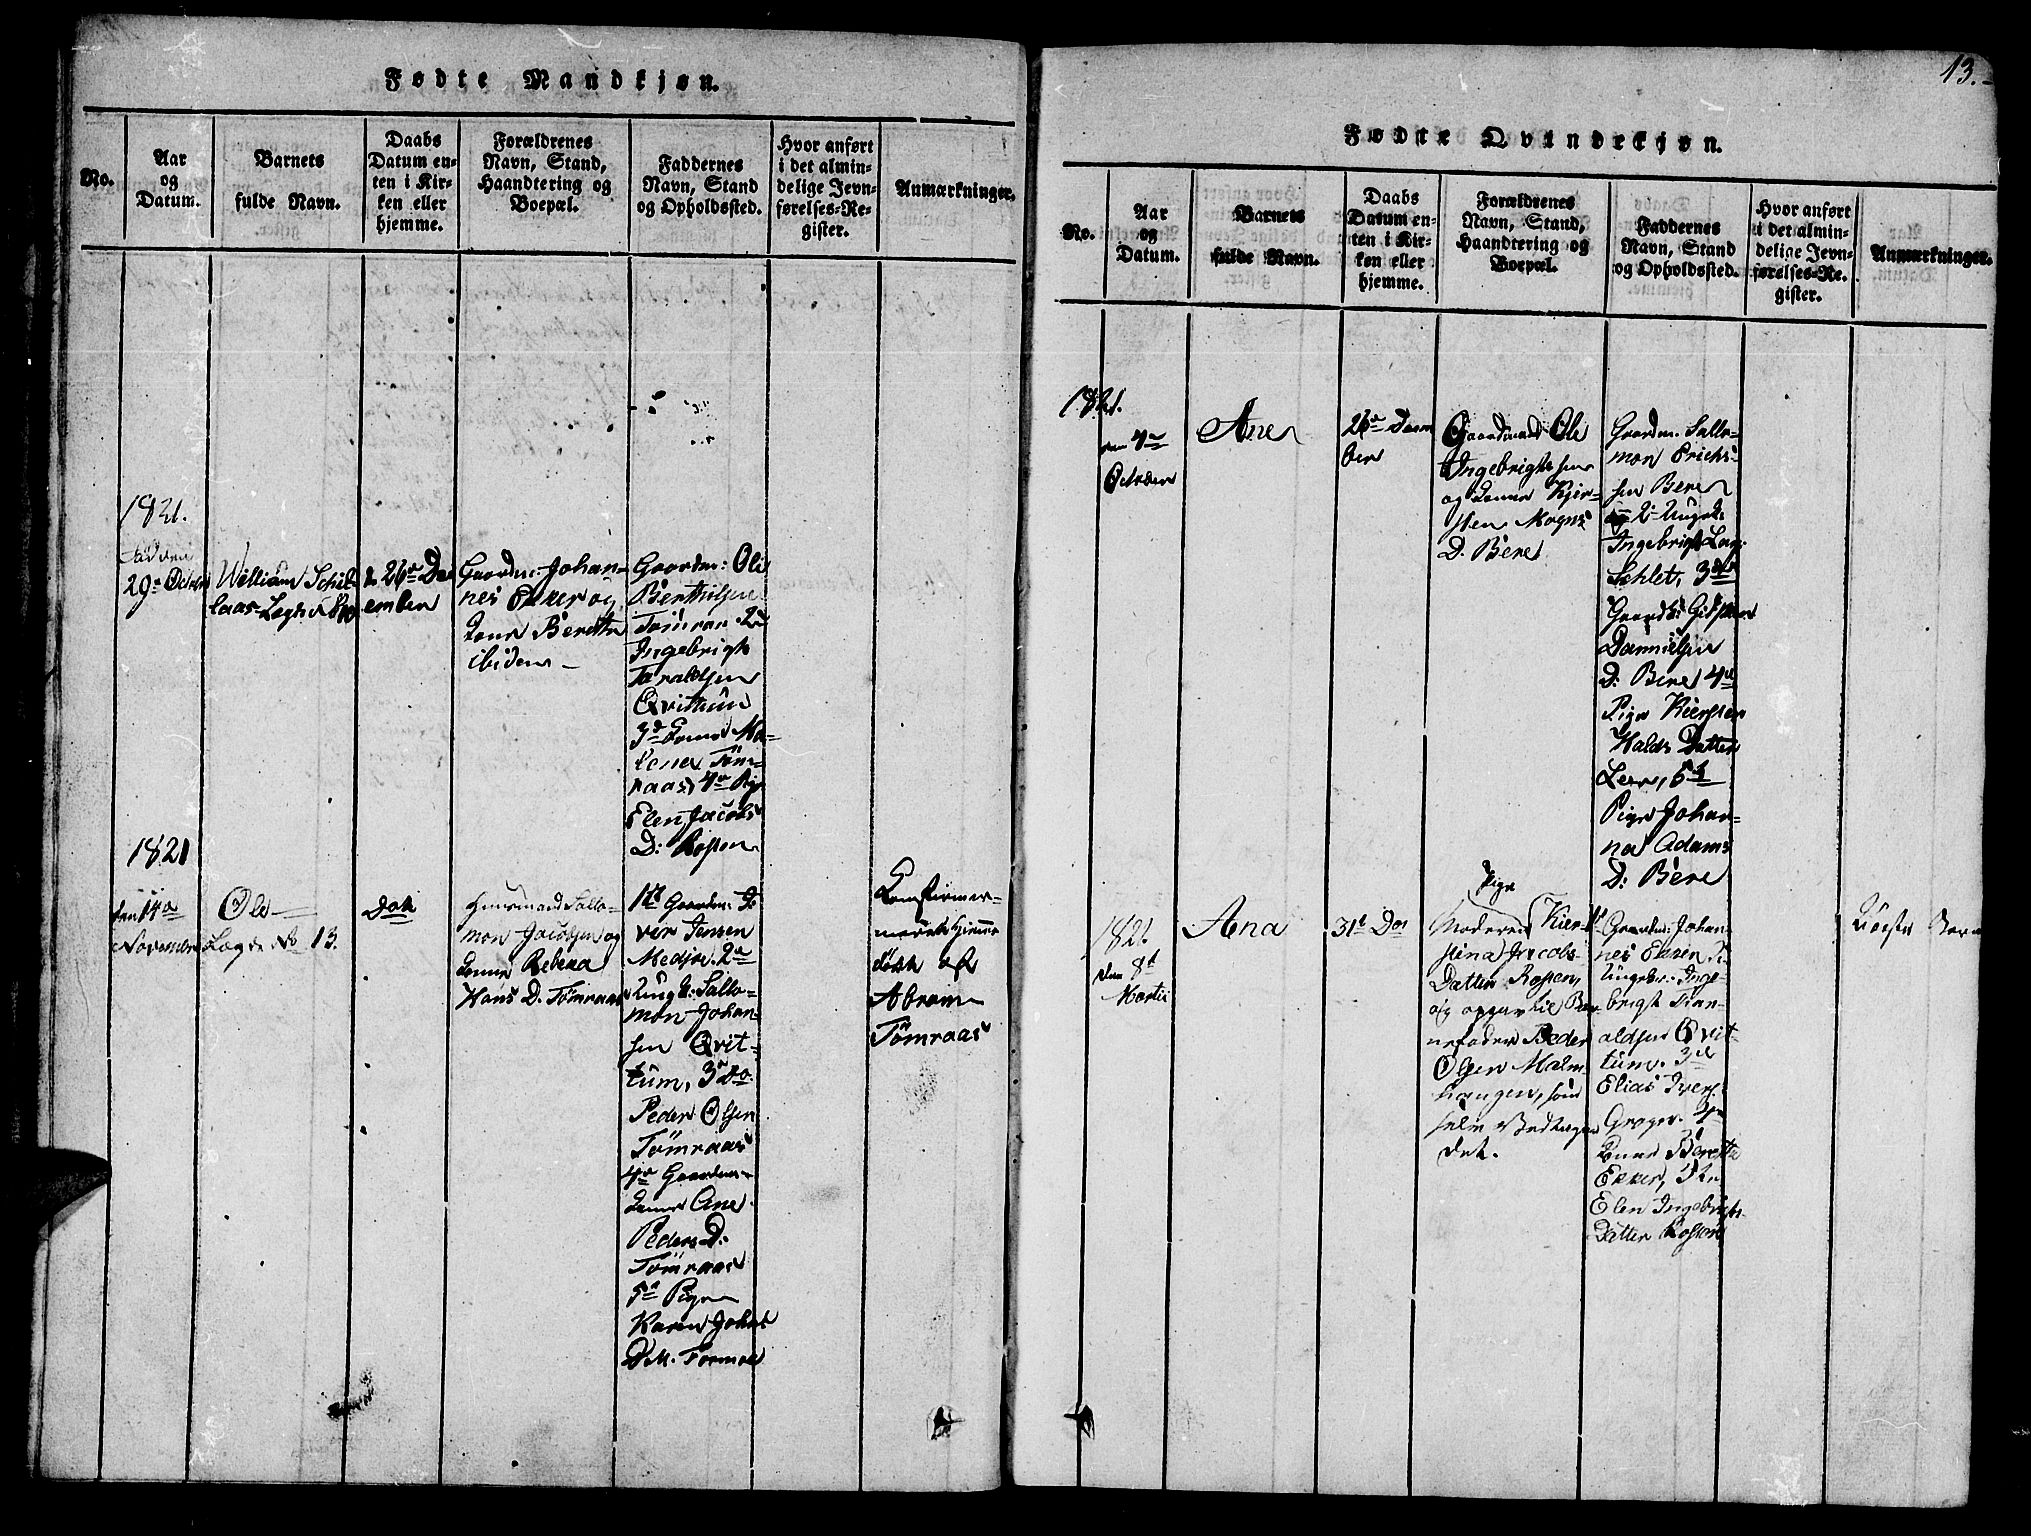 Fødte Mandkjøn.
No.
Aar
og
Datum.
Barnets
fulde Navn.
Daabs
Datum en-
ten i Kir-
ken eller
hjemme.
Forældrenes
Navn, Stand,
Haandtering og
Boepæl.
Faddernes
Navn, Stand
og Opholdssted.
Hvor anført
i det almin-
delige Jevn-
førelses-Re-
gister.
Anmærkninger.
1821.
29de October
William Schil-
26de De
ember
Gaardm: Johan-
nes Ekker og
Kone Berethe
ibidem
Gaardm: Ole
Berthelsen
Tømraas 2de
Ingebrigt
Taraldsen
Qvittum
3de Kone Ma-
lena Töm-
raas, 4de Pige
Elen Jacobs
D: Rosten
1821
den 14de
November
Ole
Do
Huusmand Sallo-
mon Jacobsen og
Kone Rebeca
Hans D. Tömraas
1te Gaardm: I-
ver Jensen
Medjae. 2de
Ungk: Sallo-
mon Johan-
sen Qvit-
tum, 3de Do
Peder Olsen
Tömraas
4de Gaardm
Kone Ane
Peders D:
Tömraas
5te Pige
Karen Johns
D.
Hjemme
døbt af
Abram
Tömraas
13.
Fødte Qvindekjøn.
No.
Aar
og
Datum.
Barnets
fulde Navn.
Daabs
Datum en-
ten i Kir-
ken eller
hjemme.
Forældrenes
Navn, Stand,
Haandtering og
Boepæl.
Faddernes
Navn, Stand
og Opholdssted.
Hvor anført
i det almin-
delige Jevn-
førelses-Re-
gister.
Anmærkninger.
1821.
den 4de
October
Ane
26de Decem
ber
Gaardmand Ole
Ingebrigtsen
og Kone Kjer-
sten Mogns
D. Bere
Gaardm. Sallo-
mon Erichs-
sen Bere
2: Ungk.
Ingebrigt
Schlet, 3de
Gaardb:
Dannielsen
D: Bere 4de
Pige Kiersten
Halds Datter
Leer, 5te
Pige Johan-
na Adams
D: Bere
1821.
den 8de
Martii
Ana
31te Do
Pige
Moderen Kier-
stina Jacobs-
Datter Rosten,
og opgav til Bar-
nefader Peder
Olsen Malm-
haugen, som
selv Vedtager
det.
1te Gaardm: Johan-
nes Ekker 2.
Ungkr: Inge-
brigt Tar-
aldsen Qvit-
tum. 3de
Elias Ivers:
4de
Kone Berethe
Ekker, 5te
Elen Ingebrigts-
Datter Rosten
Uægte Barn